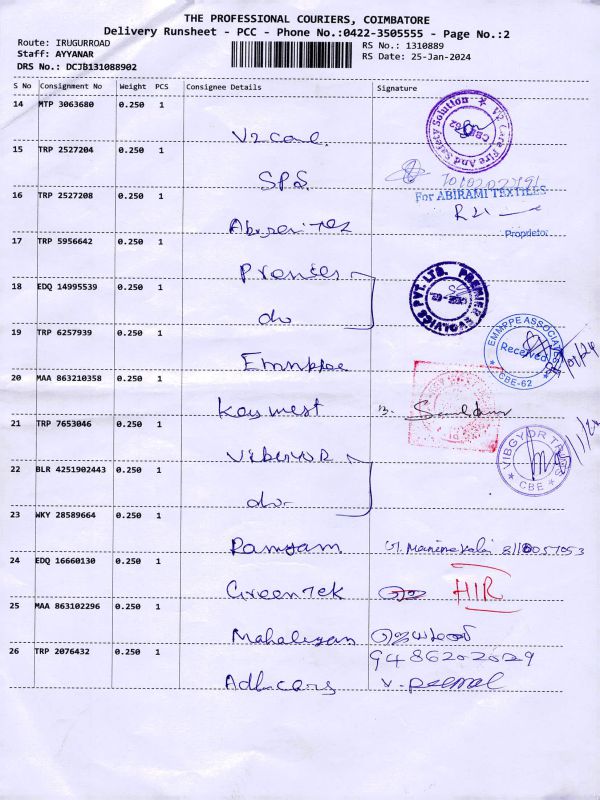 THE PROFESSIONAL COURIERS, COIMBATORE
Delivery Runsheet - PCC - Phone No.:0422-3505555 - Page No.:2
Route: IRUGURROAD
RS No.: 1310889
Staff: AYYANAR
RS Date: 25-Jan-2024
DRS No.: DCJB131088902
S No Consignment No Weight PCS Consignee Details Signature
14 MTP 3063680 0.250 1
V2 Care
V2 Care Fire And Safety Solution
CBE-62
15 TRP 2527204 0.250 1
S.P.S.
16 TRP 2527208 0.250 1
For ABIRAMI TEXTILES
Proprietor
17 TRP 5956642 0.250 1
Premier
PREMIER EVOLVICS PVT. LTD.
18 EDQ 14995539 0.250 1
do
19 TRP 6257939 0.250 1
Emmppe
EMMPPE ASSOCIATES
Received
CBE-62
20 MAA 863210358 0.250 1
Kaymest
21 TRP 7653046 0.250 1
VIBGYOR
CBE
22 BLR 4251902443 0.250 1
do
23 WKY 28589664 0.250 1
Ramyam
24 EDQ 16660130 0.250 1
GreenTek HIR
25 MAA 863102296 0.250 1
Mahaleyan
9486202029
26 TRP 2076432 0.250 1